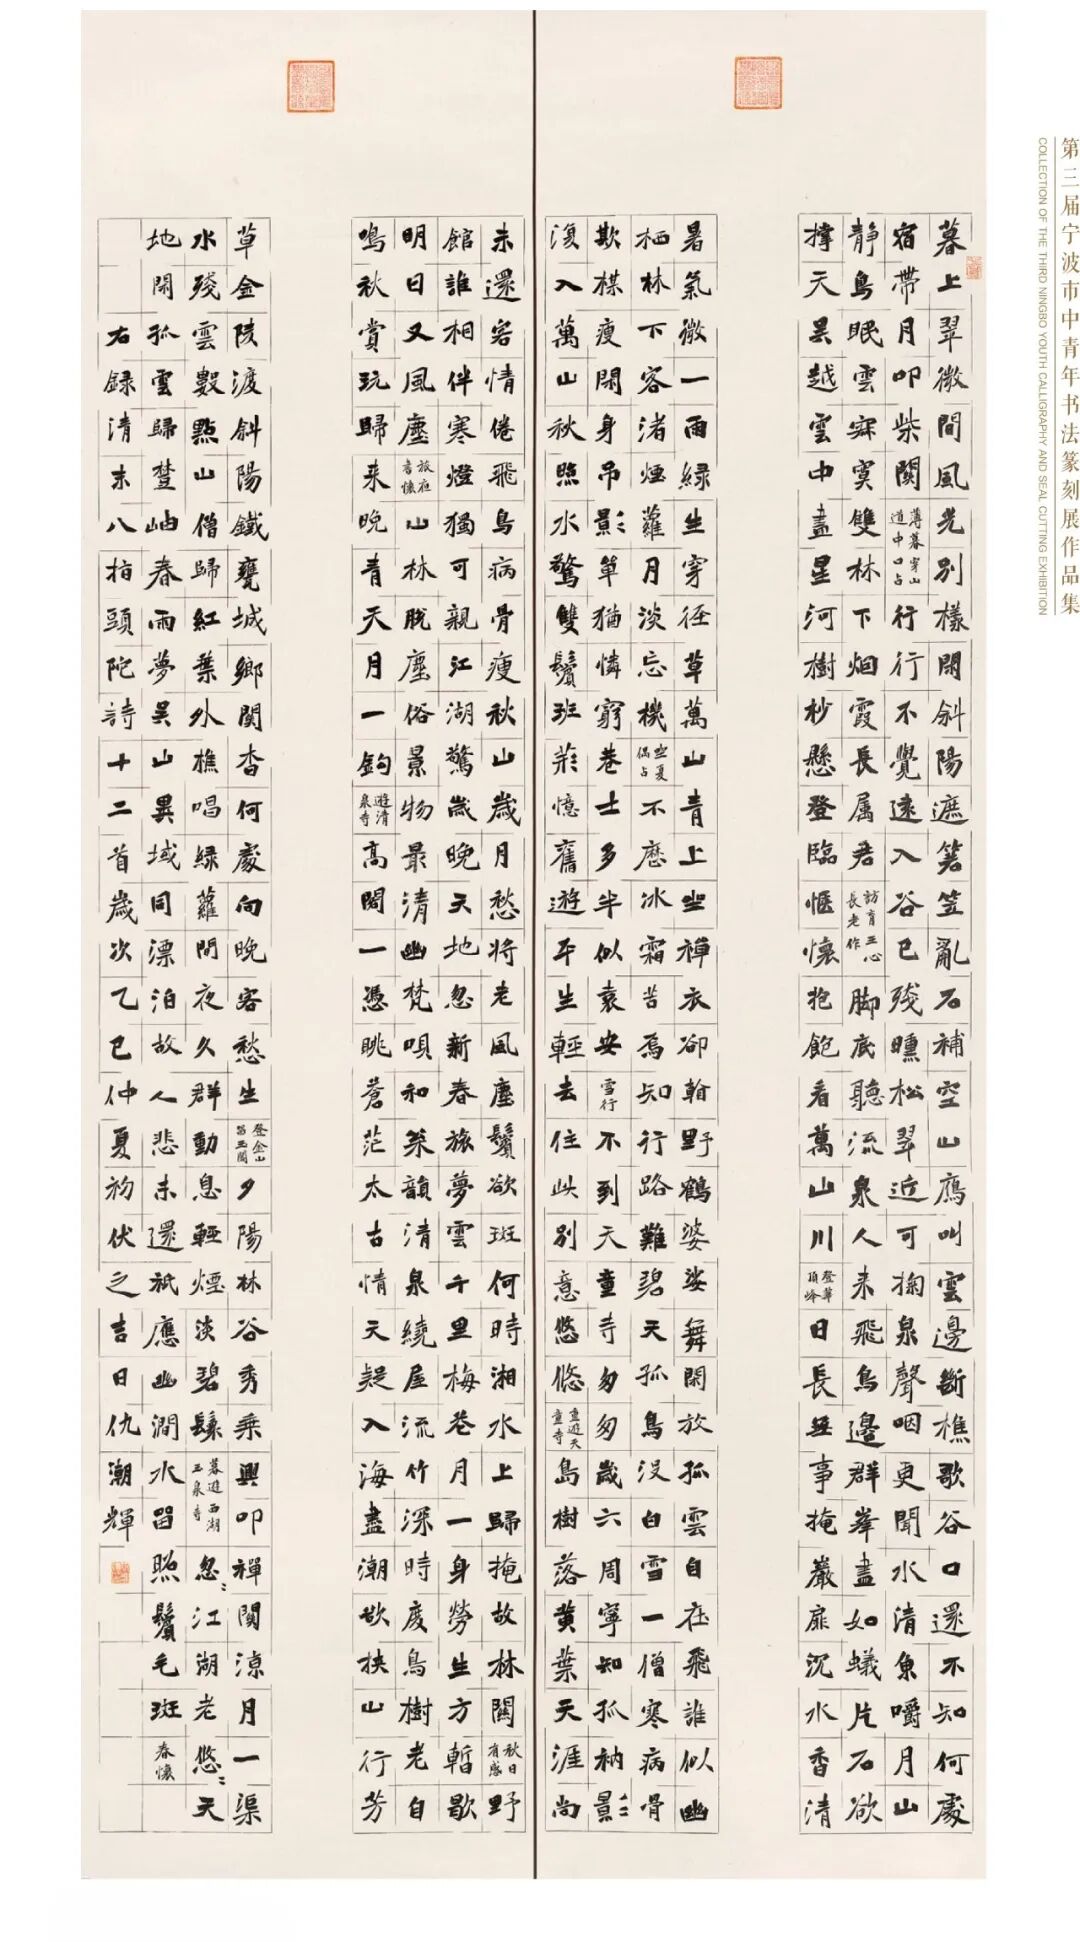 暮上翠微間風光別樣閑斜陽遮箬笠亂石補空山鴈叫雲邊斷樵歌谷口還不知何處
宿帶月叩柴關薄暮穿山道中口占行行不覺遠入谷已殘曛松翠近可掬泉聲咽更聞水清魚嚼月山
静鳥眠雲寂寞雙林下烟霞長属君訪育王心長老作脚底聽流泉人来飛鳥邊群峯盡如蟻片石欲
撑天吴越雲中盡星河樹杪懸登臨愜懷抱飽看萬山川登華頂峰日長無事掩巖扉沉水香清
暑氣微一雨緑生穿徑草萬山青上坐禪衣卻翰野鶴婆娑舞閑放孤雲自在飛誰似幽
栖林下客渚煙蘿月淡忘機坐夏偶占不歷冰霜苦焉知行路難碧天孤鳥没白雪一僧寒病骨
欺楳瘦閑身吊影單猶憐窮巷士多半似袁安雪行不到天童寺匆匆歲六周寧知孤衲影
復入萬山秋照水驚雙鬢班荊憶舊遊平生輕去住此別意悠悠重遊天童寺島樹落黄葉天涯尚
未還客情倦飛鳥病骨瘦秋山歲月愁將老風塵鬢欲斑何時湘水上歸掩故林關秋日有感野
館誰相伴寒燈獨可親江湖驚歲晚天地忽新春旅夢雲千里梅花月一身勞生方暫歇
明日又風塵旅夜書懷山林脱塵俗景物最清幽梵唄和韻清泉繞屋流竹深時度鳥樹老自
鳴秋賞玩歸来晚青天月一鉤遊清泉寺高閣一憑眺蒼茫太古情天疑入海盡潮欲挾山行芳
草金陵渡斜陽鐵甕城鄉關杳何處向晚客愁生登金山留玉閣夕陽林谷秀乘興叩禪關涼月一渠
水殘雲數點山僧歸紅葉外樵唱緑蘿間夜久群動息輕煙淡碧鬟暮遊西湖玉泉寺忽〻江湖老悠〻天
地閑孤雲歸楚岫春雨夢吴山異域同漂泊故人悲未還祇應幽澗水留照鬢毛斑春懷
右録清末八指頭陀詩十二首歲次乙巳仲夏初伏之吉日仇潮輝
第三届宁波市中青年书法篆刻展作品集
COLLECTION OF THE THIRD NINGBO YOUTH CALLIGRAPHY AND SEAL CUTTING EXHIBITION